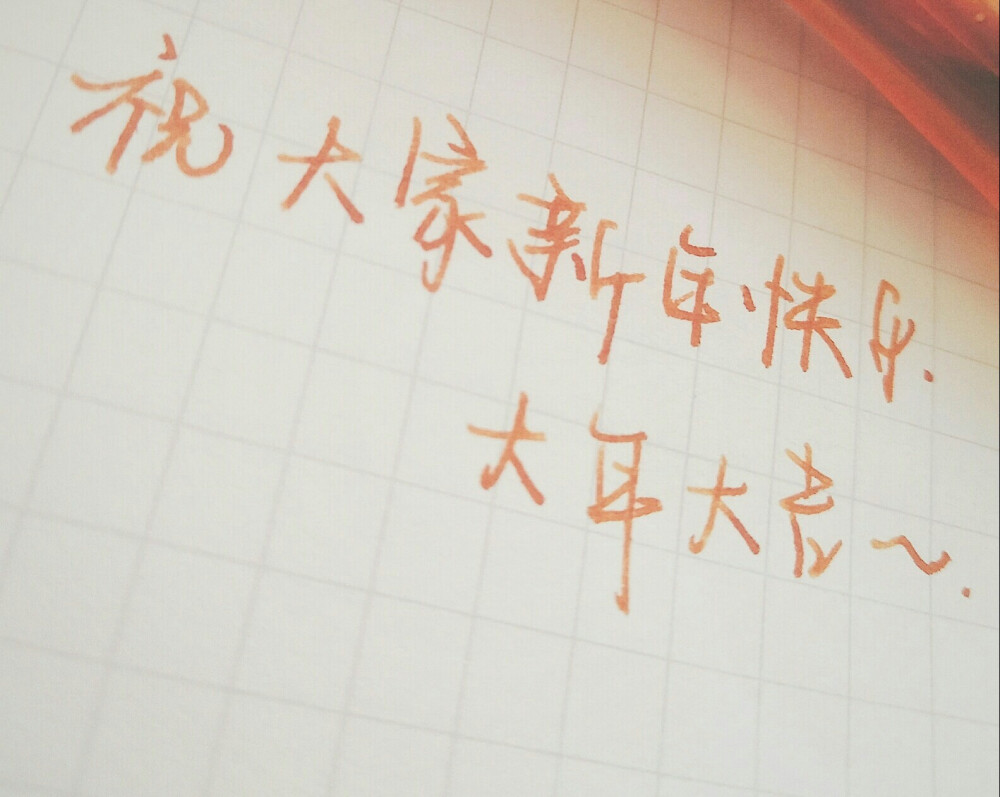 祝大家新年快乐.
大年大吉~.